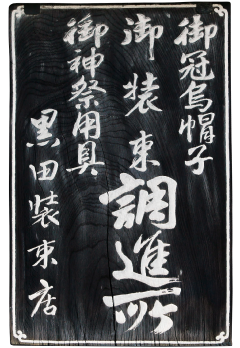 御冠烏帽子
御装束調進所
御神祭用具
黒田装束店